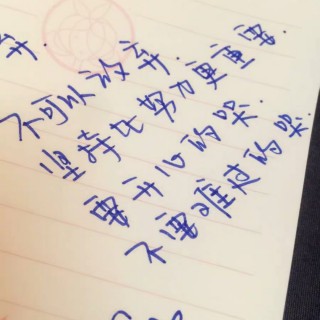 弃.
不可以放弃.
坚持比努力更重要.
要开心的哦.
不要难过的哦.